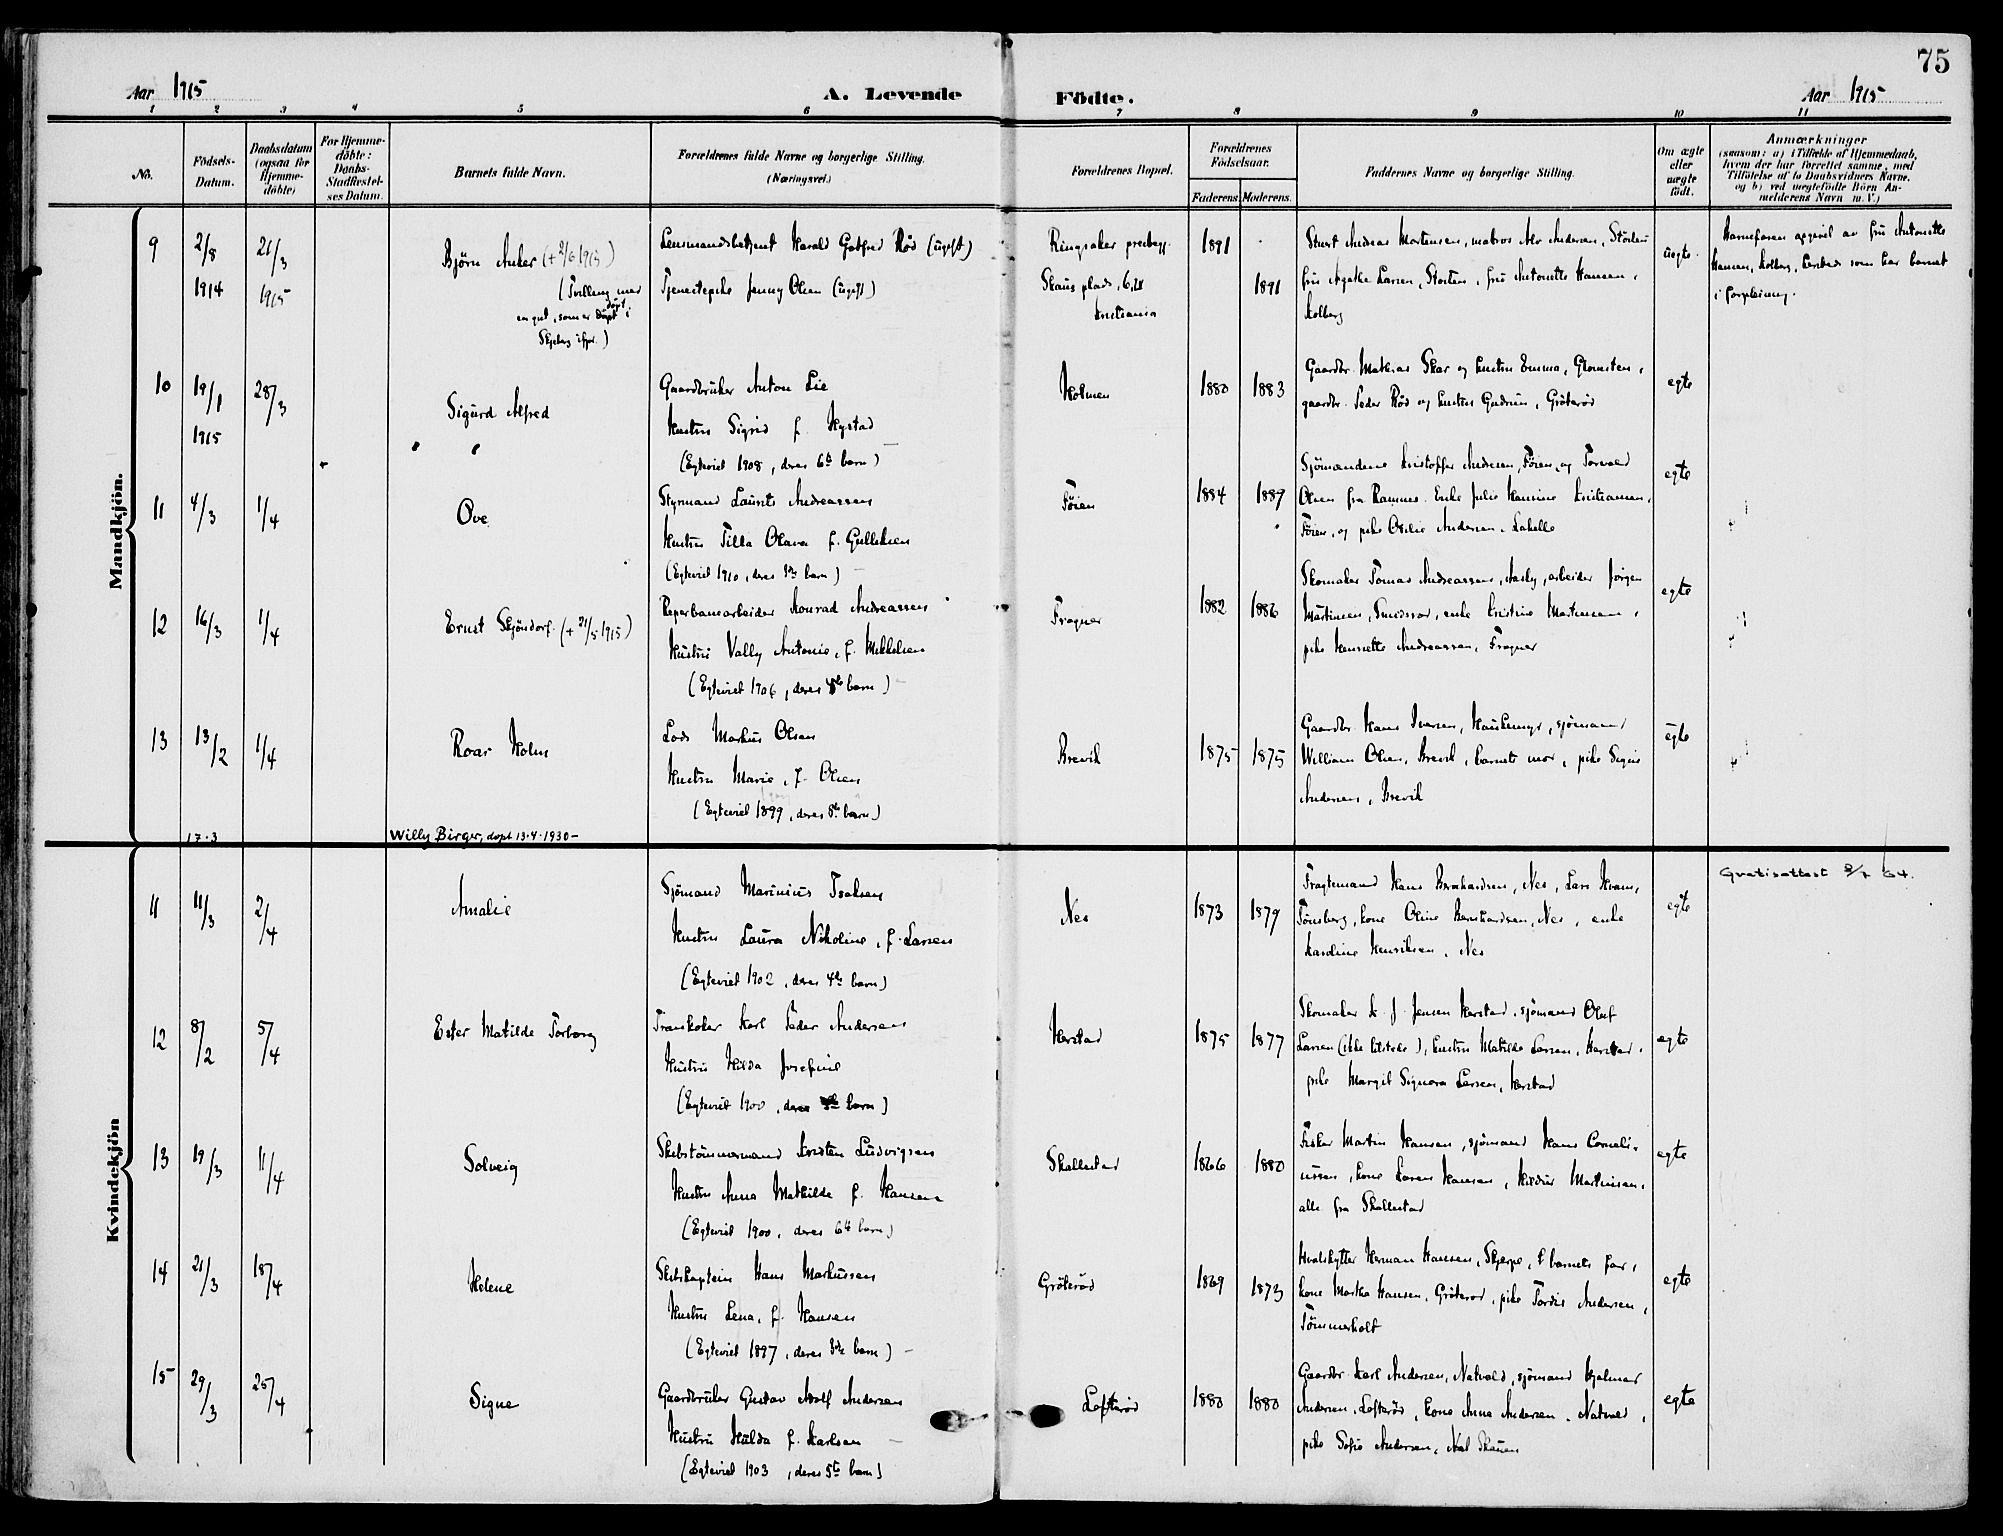 75
Aar 1915
A. Levende Födte.
Aar 1915
1 2 3 4 5 6 7 8 9 10 11
No.
Födsels-
Datum.
Daabsdatum
(ogsaa for
Hjemme-
döbte)
For Hjemme-
döbte:
Daabs-
Stadfæstel-
ses Datum.
Barnets fulde Navn.
Forældrenes fulde Navne og borgerlige Stilling.
(Næringsvei.)
Forældrenes Bopæl.
Forældrenes
Födselsaar.
Faderens. Moderens.
Faddernes Navne og borgerlige Stilling.
Om ægte
eller
uægte
födt.
Anmærkninger
(saasom: a) i Tilfælde af Hjemmedaab,
hvem der har forrettet samme, med
Tilföielse af to Daabsvidners Navne.
og b) ved uægtefödte Börn An-
melderens Navn m. V.)
Mandkjön.
9
2/8
1914
21/3
1915
Björn Anker (+ 2/6 1915)
(Tvilling med
en gut, som er döpt i
Skjeberg)
Lensmandsbetjent Harald Gotfred Röd (ugift)
Tjenestepike Jenny Olsen (ugift)
Ringsaker prestegj.
Skaus plads, 6,
Kristiania
1891
1891
Stuert Andreas Mortensen, matros Alv Andersen, Stokten
fru Agathe Larsen, Stokten, fru Antonette Hansen,
Kolberg
uegte
Barnefaren opgivet av fru Antonette
Hansen, Kolberg, Tertnes som har barnet
i forpleining.
10
19/1
1915
28/3
Sigurd Alfred
Gaardbruker Anton Lie
Hustru Sigrid f. Hystad
(Egteviet 1908, deres 6te barn)
Holmen
1880 1883
Gaardbr. Mathias Skar og hustru Emma, Glomsten,
gaardbr. Peder Röd og hustru Gudrun, Gröteröd
egte
11
4/3
1/4
Ove
Styrmand Laurits Andreassen
Hustru Tilla Olava f. Gulliksen
(Egteviet 1910, deres 3die barn)
Föien
1884 1887
Sjömændene Kristoffer Andersen, Föien, og Torvald
Olsen fra Ramnes. Enke Julie Hansine Kristiansen,
Föien, og pike Otilie Andersen, Lahelle
egte
12
16/3
1/4
Ernst Skjöndorf (+ 21/5 1915)
Reperbanearbeider Konrad Andreassen
Hustru Vally Antonie, f. Mikkelsen
(Egteviet 1906, deres 4de barn)
Fragner
1882 1886
Skomaker Tomas Andreassen, Aasly, arbeider Jörgen
Martinsen, Smidsröd, enke Kristine Martinsen,
pike Henriette Andreassen, Fragner
egte
13
13/2
1/4
Roar Holm
Lods Markus Olsen
Hustru Marie, f. Olsen
(Egteviet 1899, deres 8de barn)
Brevik
1875 1875
Gaardbr. Hans Iversen, Haukemyr, sjömand
William Olsen, Brevik, barnets mor, pike Signe
Andersen, Brevik
egte
17.3
Willy Birger, döpt 13.4.1930 –
Kvindekjön
11
11/3
2/4
Amalie
Sjömand Marinius Isaksen
Hustru Laura Nikoline, f. Larsen
(Egteviet 1902, deres 4de barn)
Nes
1873 1879
Fragtemand Hans Bernhardsen, Nes, Lars Kvam,
Tönsberg, kone Oline Bernhardsen, Nes, enke
Karoline Henriksen, Nes
egte
Gratisattest 8/7 64.
12
8/2
5/4
Ester Matilde Torborg
Trankoker Karl Peder Andersen
Hustru Hilda Josefine
(Egteviet 1900, deres barn)
Herstad
1875 1877
Skomaker K. J. Jensen Herstad, sjömand Olaf
Larsen (ikke tilstede), hustru Matilde Larsen, Herstad,
pike Margit Signora Larsen, Herstad
egte
13
19/3
11/4
Solveig
Skibstömmermand Kristen Ludvigsen
Hustru Anna Mathilde f. Hansen
(Egteviet 1900, deres 6te barn)
Skallestad
1866 1880
Fisker Martin Hansen, sjömand Hans Corneli-
ussen, kone Laren Hansen, Hildur Martinsen,
alle fra Skallestad
egte
14
21/3
18/4
Helene
Skibskaptein Hans Markussen
Hustru Lena, f. Hansen
(Egteviet 1897, deres 3die barn)
Gröteröd
1869 1873
Hvalskytter Herman Hansen, Skjerpe, & barnets far,
kone Martha Hansen, Gröteröd, pike Tordis Andersen,
Tömmerholt
egte
15
29/3
25/4
Signe
Gaardbruker Gustav Adolf Andersen
Hustru Hulda f. Karlsen
(Egteviet 1903, deres 5te barn)
Lofteröd
1880 1880
Gaardbr. Karl Andersen, Natvold, sjömand Hjalmar
Andersen, Lofteröd, kone Anna Andersen, Natvold,
pike Sofie Andersen, Skauen
egte